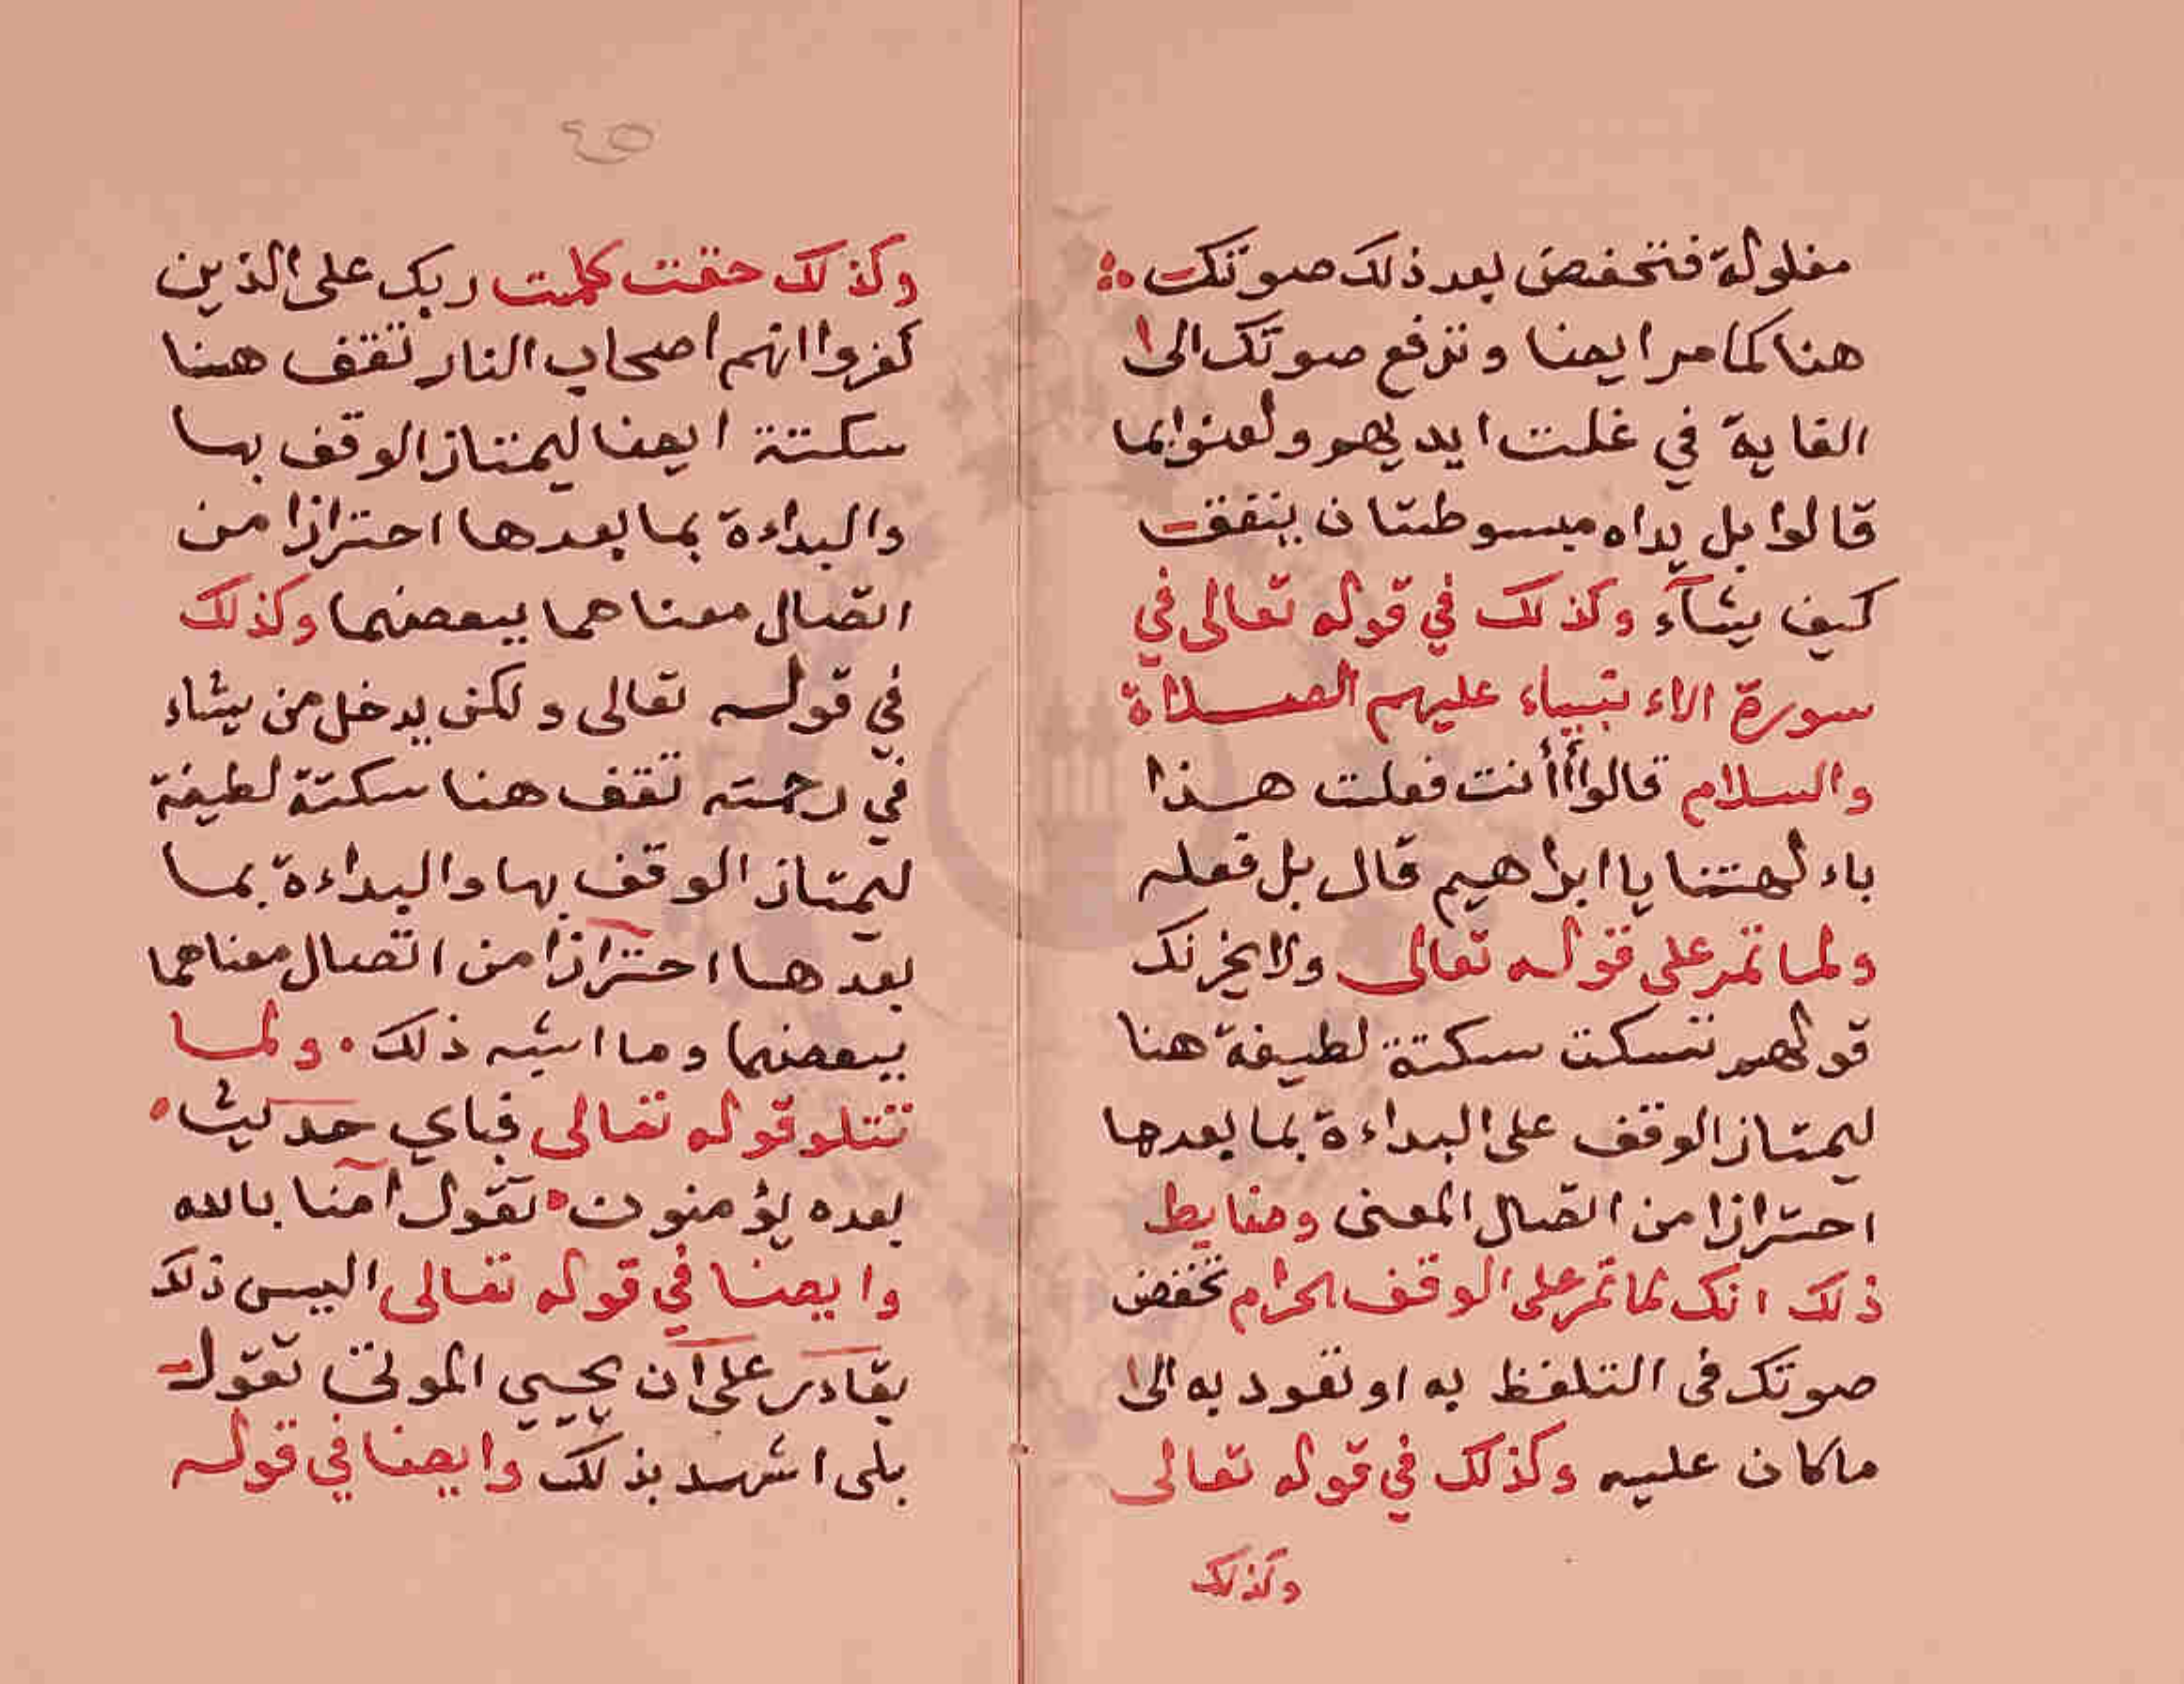 مغلولة فتخفض بعد ذلك صوتك
هنا كما مر ايضا وترفع صوتك الى
الغاية في غلت ايديهم ولعنوا بما
قالوا بل يداه مبسوطتان ينفق
كيف يشآء وكذلك في قوله تعالى في
سورة الاءنبياء عليهم الصلاة
والسلام قالوا أأنت فعلت هذا
باءلهتنا يا ابراهيم قال بل فعله
ولما تمر على قوله تعالى ولا يحزنك
قولهم تسكت سكتة لطيفة هنا
ليمتاز الوقف على البداءة بما بعدها
احترازا من اتصال المعنى وضابط
ذلك انك لما تمر على الوقف الحرام تخفض
صوتك في التلفظ به او تعود به الى
ماكان عليه وكذلك في قوله تعالى
وكذلك
٢٥
وكذلك حقت كلمت ربك على الذين
كفروا انهم اصحاب النار تقف هنا
سكتة ايضا ليمتاز الوقف بها
والبداءة بما بعدها احترازا من
اتصال معناهما ببعضهما وكذلك
في قوله تعالى ولكن يدخل من يشاء
في رحمته تقف هنا سكتة لطيفة
ليمتاز الوقف بها والبداءة بما
بعدها احترازا من اتصال معناهما
ببعضهما وما اشبه ذلك ٠ ولما
تتلو قوله تعالى فباي حديث
بعده يؤمنون تقول آمنا بالله
وايضا في قوله تعالى اليس ذلك
بقادر على ان يحيي الموتى تقول
بلى اشهد بذلك وايضا في قوله